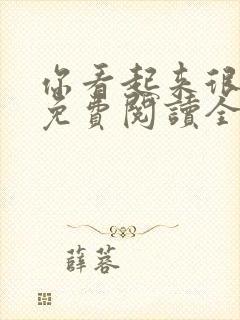 你看起來很
免費閱讀全
薛蓉